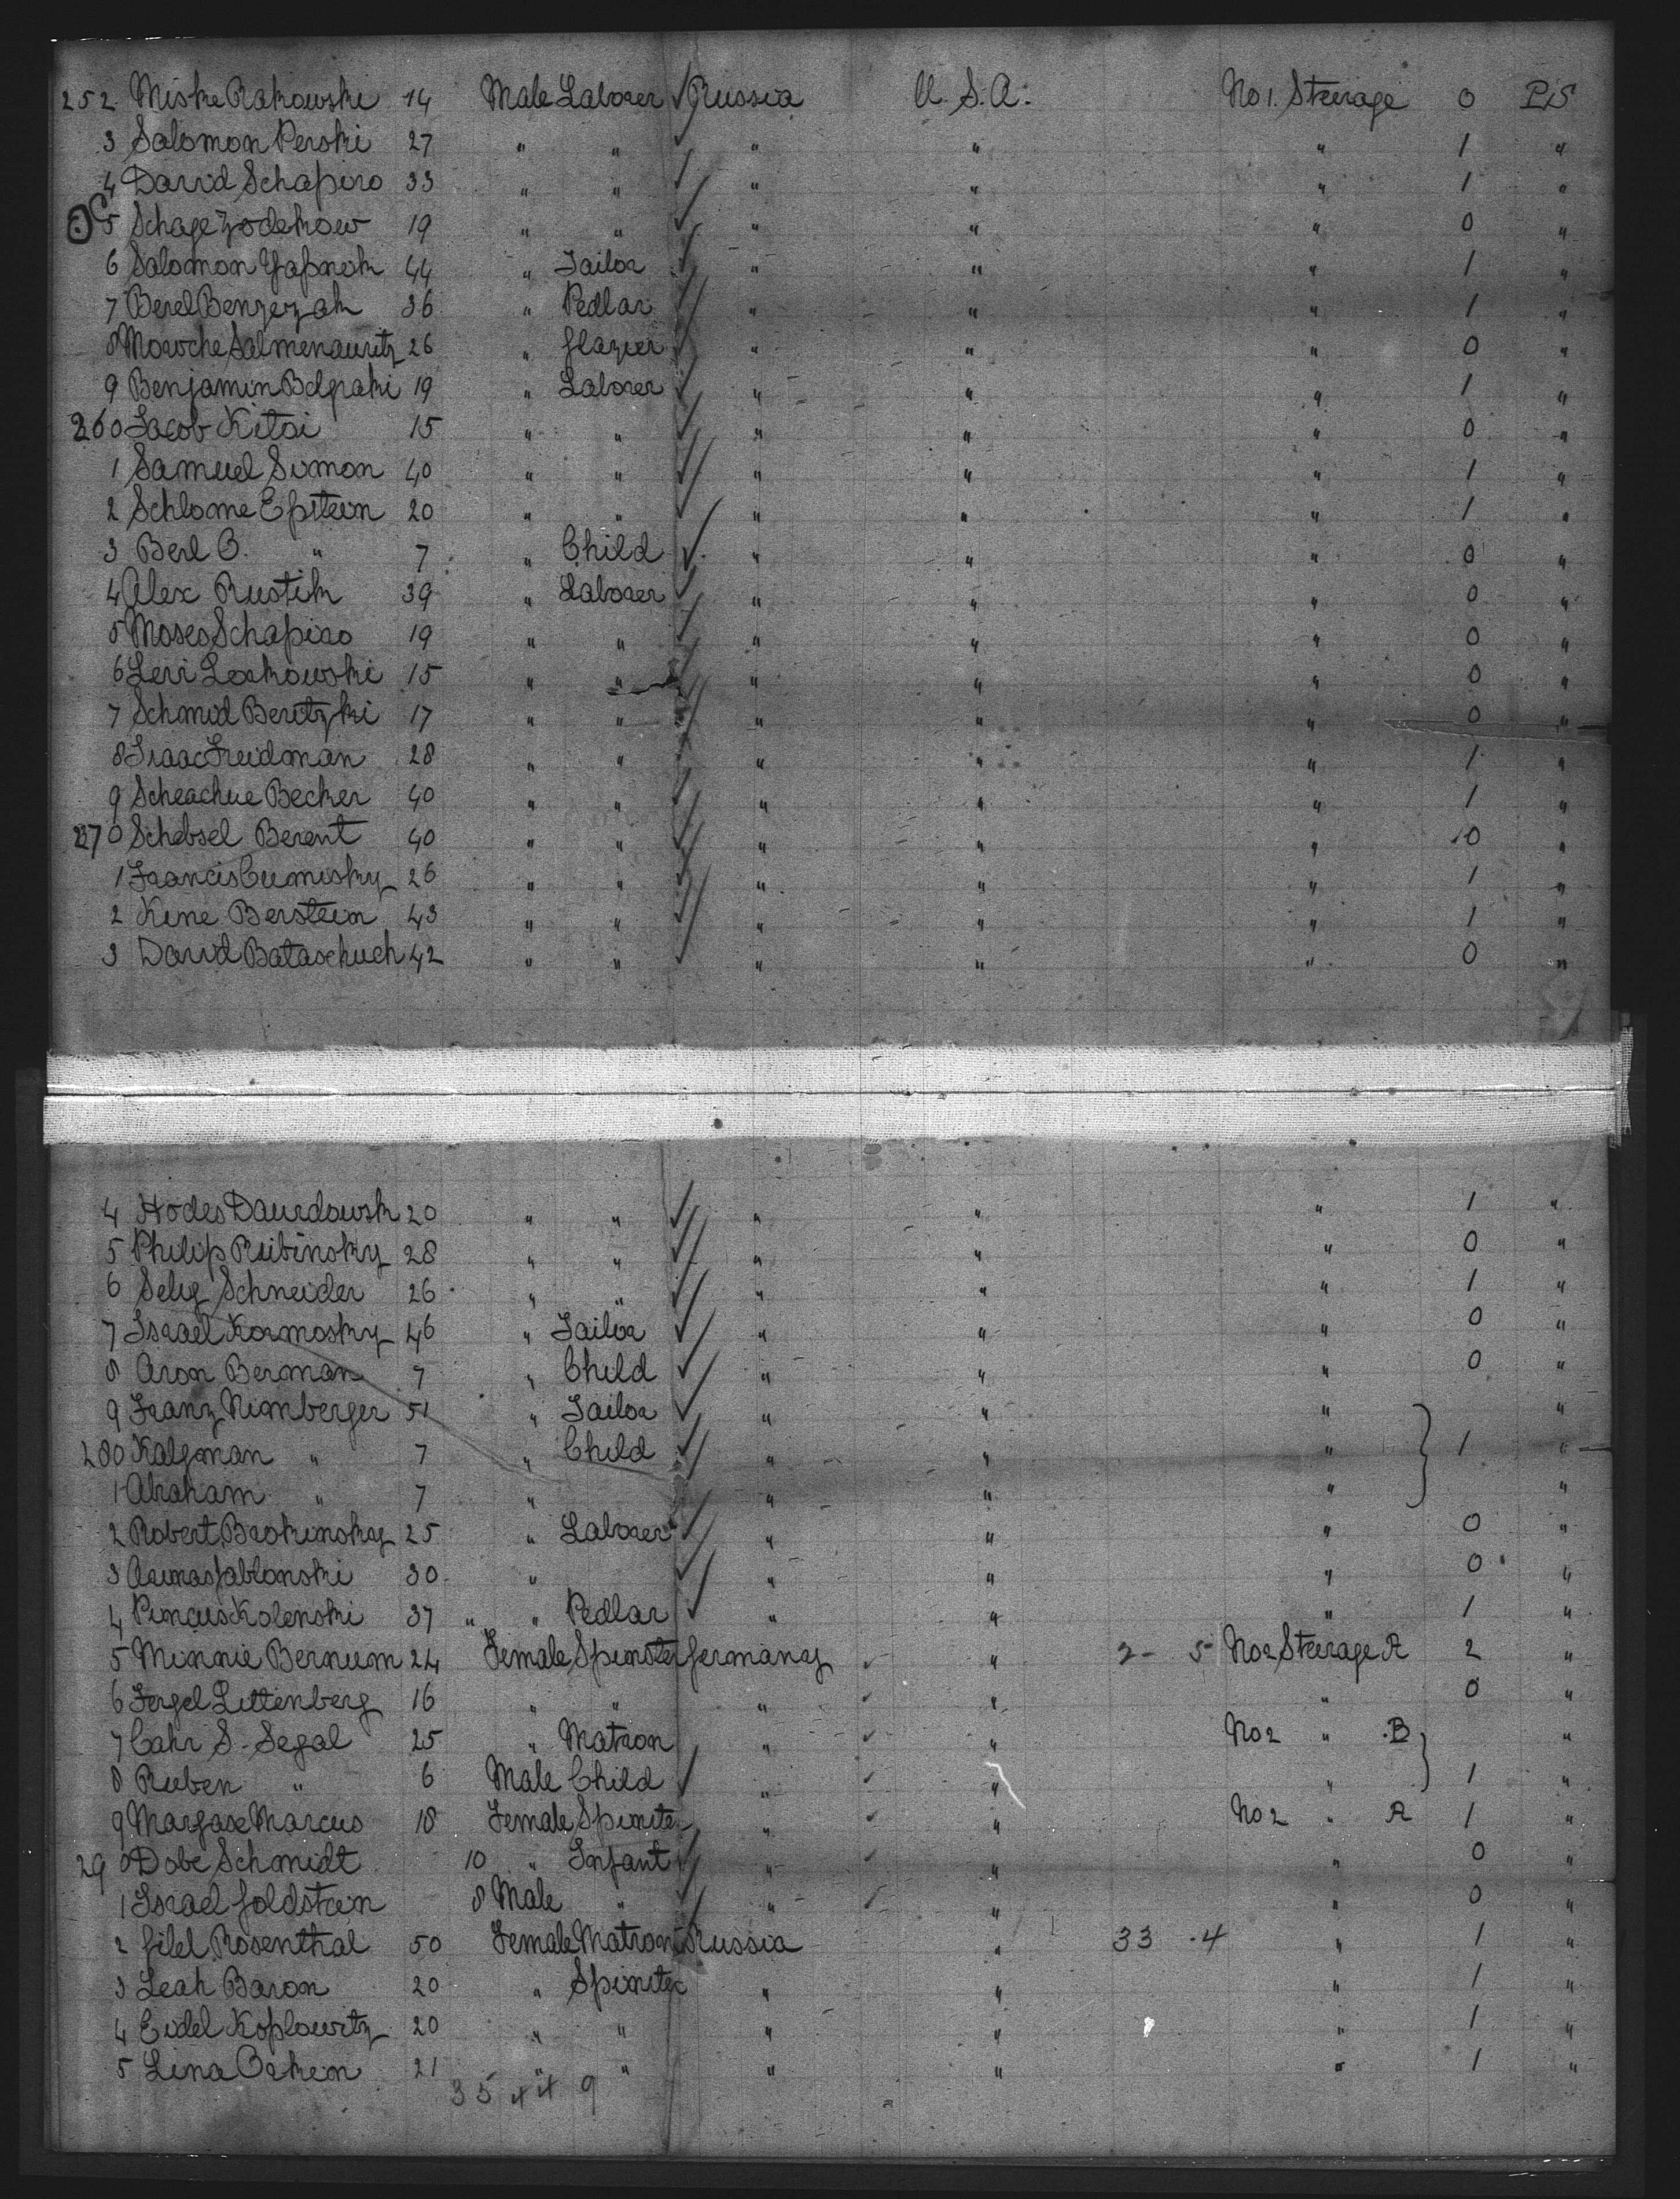 252 Miske Rakowski 14 Male Laborer ✓ Russia U. S. A. No 1. Steerage 0 P.S
3 Salomon Perski 27 " " ✓ " " " 1 "
4 David Schapiro 33 " " ✓ " " " 1 "
5 Schage 19 " " ✓ " " " 0 "
6 Salomon 44 " Tailor ✓ " " " 1 "
7 Berel 36 " Pedlar ✓ " " " 1 "
8 26 " Glazier ✓ " " " 0 "
9 Benjamin 19 " Laborer ✓ " " " 1 "
260 Jacob Kitai 15 " " ✓ " " " 0 "
1 Samuel Simon 40 " " ✓ " " " 1 "
2 Schlome Epstein 20 " " ✓ " " " 1 "
3 Berl O. " 7 " Child ✓ " " " 0 "
4 Alex Rustik 39 " Laborer ✓ " " " 0 "
5 Moses Schapiro 19 " " ✓ " " " 0 "
6 Levi 15 " " ✓ " " " 0 "
7 Schmid Beritzki 17 " " ✓ " " " 0 "
8 Isaac Freidman 28 " " ✓ " " " 1 "
9 Scheachue Becker 40 " " ✓ " " " 1 "
270 Schebsel Berent 40 " " ✓ " " " 0 "
1 Francis Cumisky 26 " " ✓ " " " 1 "
2 Kine Berstein 43 " " ✓ " " " 1 "
3 David Bataschuch 42 " " ✓ " " " 0 "
4 Hodes Daurdowsk 20 " " ✓ " " " 1 "
5 Philip Rubinsky 28 " " ✓ " " " 0 "
6 Selig Schneider 26 " " ✓ " " " 1 "
7 Israel Kormosky 46 " Tailor ✓ " " " 0 "
8 Aron Berman 7 " Child ✓ " " " 0 "
9 Franz Nimberger 51 " Tailor ✓ " " " "
280 Kalgman " 7 " Child ✓ " " " 1 "
1 Abraham " 7 " " " " "
2 Robert Brokinsky 25 " Laborer ✓ " " " 0 "
3 Jablonski 30 " ✓ " " " 0 "
4 Pincus Kolenski 37 " " Pedlar ✓ " " " 1 "
5 Minnie Bernum 24 Female Spinster Germany ✓ " 2 - 5 No 2 Steerage A 2 "
6 Littenberg 16 " " " ✓ " " 0 "
7 Cahr S. Segal 25 " Matron " ✓ " No 2 " B "
8 Ruben " 6 Male Child ✓ " ✓ " " 1 "
9 Marcus 18 Female Spinster " ✓ " No 2 " A 1 "
290 Dobe Schmidt 10 " Infant ✓ " ✓ " " 0 "
1 Israel Goldstein 8 Male " ✓ " ✓ " " 0 "
2 Gilel Rosenthal 50 Female Matron Russia " 33 - 4 " 1 "
3 Leah Baron 20 " Spinster " " " 1 "
4 Eidel Koplowitz 20 " " " " " 1 "
5 Lina 21 " " " " " 1 "
35 44 9